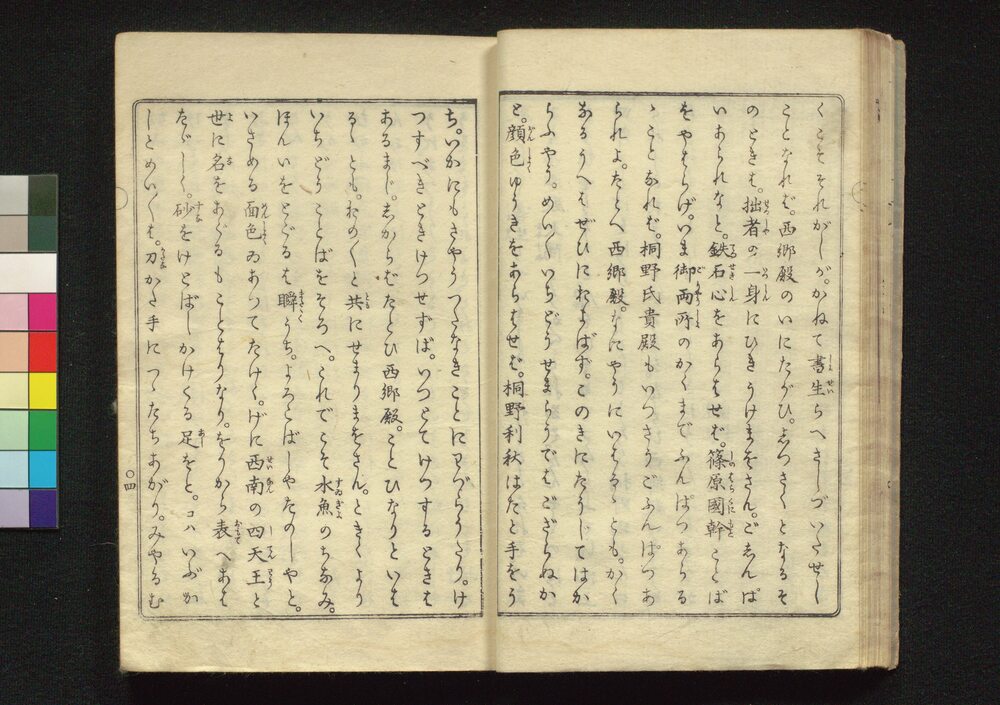 くこそそれがしがかねて書生らへさしづいたせし
ことなれば。西郷殿のいにたがひ。しつさくとなるそ
のときは。拙者の一身にひきうけまをさん。ごしんぱ
いあられなと。鉄石心をあらはせば。篠原國幹ことば
をやはらげ。いま御両所のかくまでふんぱつあらる
ゝことなれば。桐野氏貴殿もいつさうごふんぱつあ
られよ。たとへ西郷殿。なにやうにいはるゝとも。かく
なるうへはぜひにおよばず。このきにたうじてはか
らふやう。めい〳〵いちどうせまらうではござらぬか
と。顔色ゆうきをあらはせば。桐野利秋はたと手をう
ち。いかにもさやうつたなきことにわづらうたり。け
つすべきときけつせずば。いつとてけつするときは
あるまじ。しからばたとひ西郷殿。ことひなりといは
るゝとも。おの〳〵と共にせまりまをさん。ときくより
いちどうことばをそろへ。これでこそ水魚のちなみ。
ほんいをとぐるは瞬うち。よろこばしやたのしやと。
いさめる面色ゐあつてたけく。げに西南の四天王と
世に名をあぐるもことはりなり。をりから表へあは
たゞしく。砂をけとばしかけくる足をと。コハいぶか
しとめい〳〵は。刀かた手につゝたちあがり。みやるむ
〇四